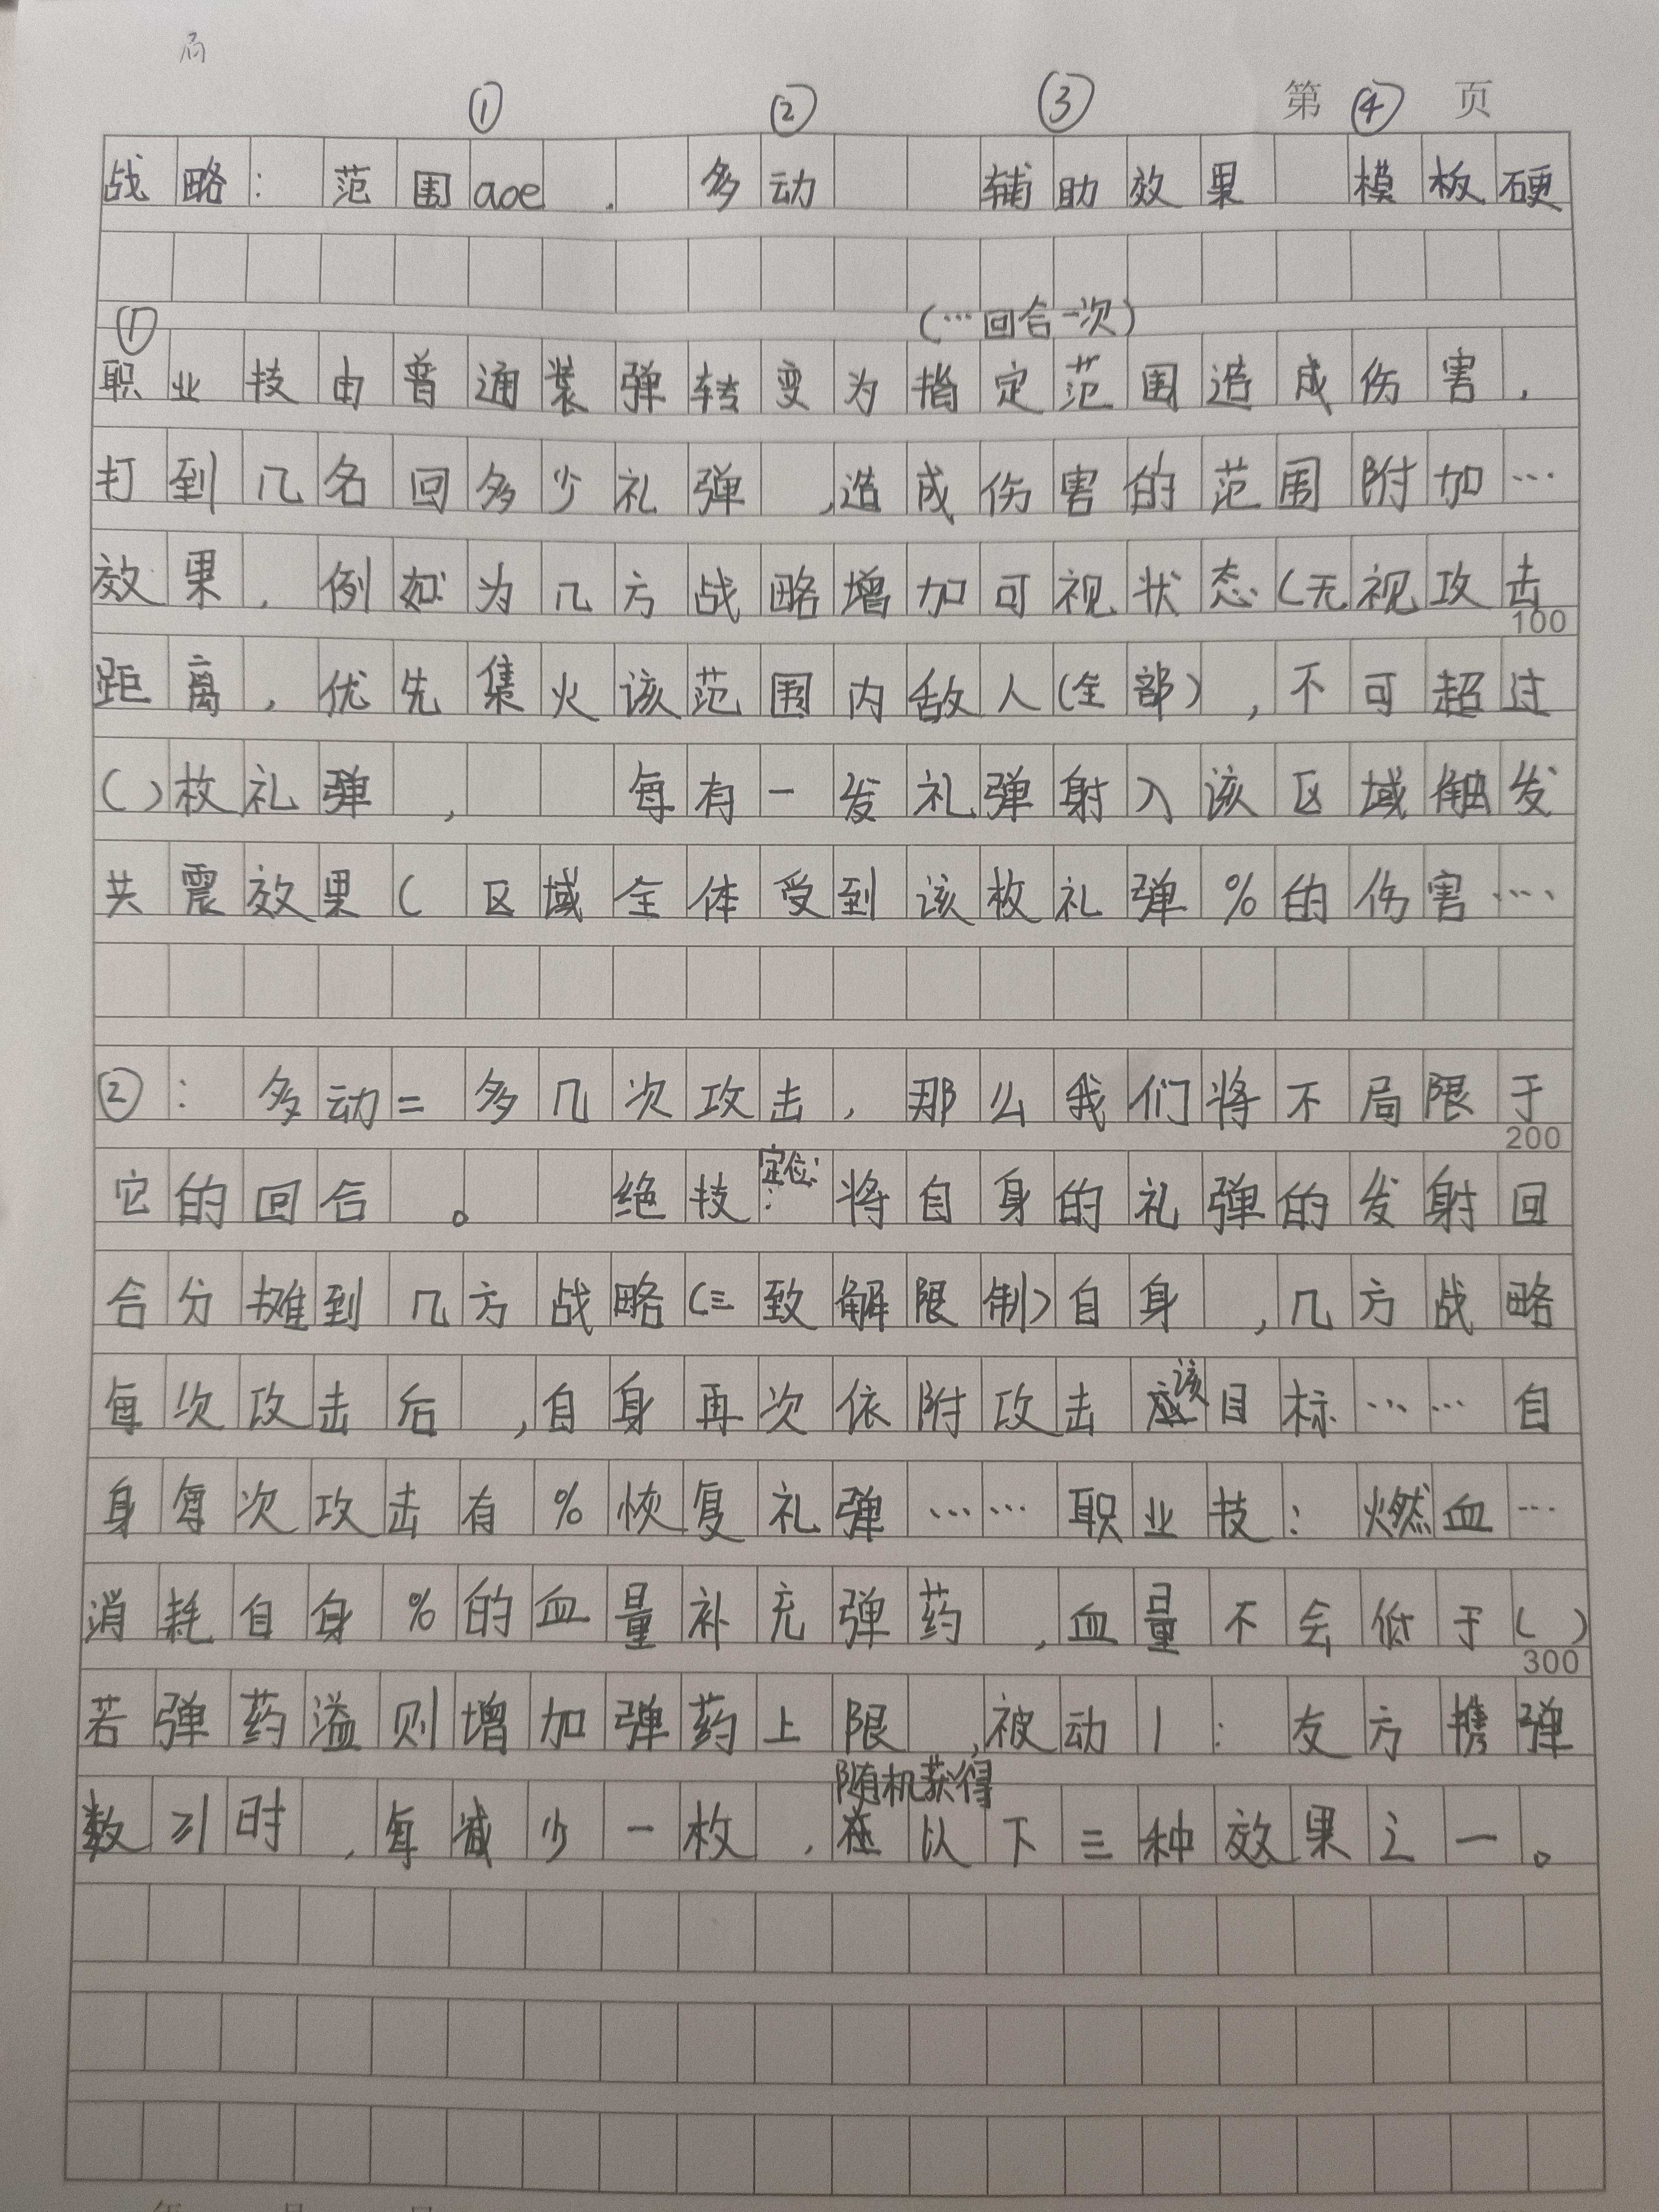 局
① ② ③ 第④页
战略：范围aoe. 多动 辅助效果 模板硬
(…回合一次)
①
职业技由普通装弹转变为指定范围造成伤害，
打到几名回多少礼弹，造成伤害的范围附加…
效果，例如为几方战略增加可视状态(无视攻击
100
距离，优先集火该范围内敌人(全部)，不可超过
( )枚礼弹， 每有一发礼弹射入该区域触发
共震效果( 区域全体受到该枚礼弹%的伤害……
②：多动=多几次攻击，那么我们将不局限于
200
它的回合。 绝技定位：将自身的礼弹的发射回
合分摊到几方战略(三致解限制)自身，几方战略
每次攻击后，自身再次依附攻击该目标……自
身每次攻击有%恢复礼弹……职业技：燃血…
消耗自身%的血量补充弹药，血量不会低于( )
300
若弹药溢则增加弹药上限，被动1：友方携弹
随机获得
数≥1时，每减少一枚，以下三种效果之一。